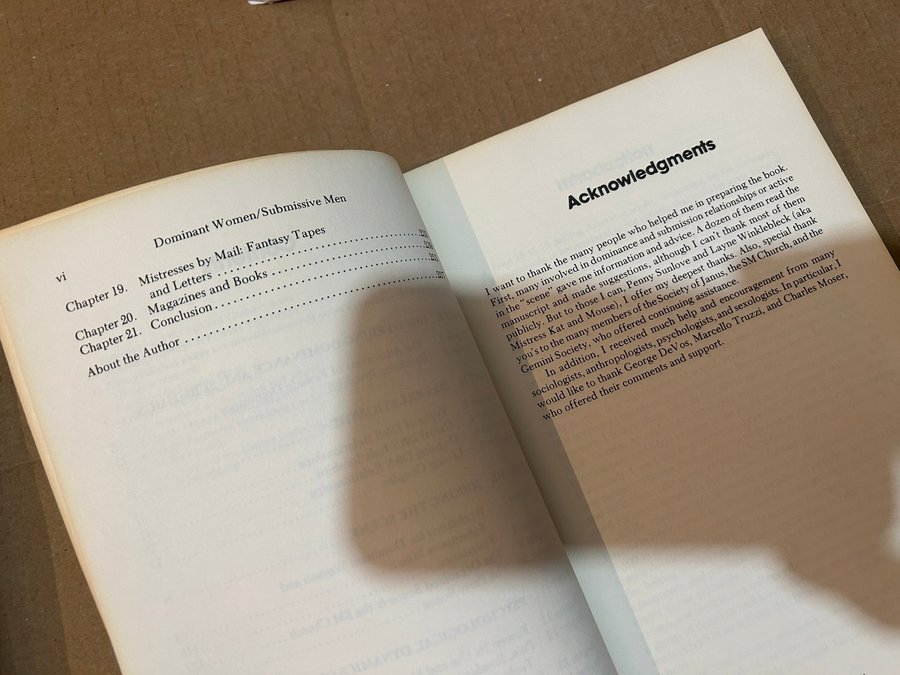 vi
Dominant Women/Submissive Men
Chapter 19. Mistresses by Mail: Fantasy Tapes
and Letters
Chapter 20. Magazines and Books
Chapter 21. Conclusion
About the Author
Acknowledgments
I want to thank the many people who helped me in preparing the book.
First, many involved in dominance and submission relationships or active
in the "scene" gave me information and advice. A dozen of them read the
manuscript and made suggestions, although I can't thank most of them
publicly. But to those I can, Penny Sunlove and Layne Winklebleck (aka
Mistress Kat and Mouse), I offer my deepest thanks. Also, special thank
you's to the many members of the Society of Janus, the SM Church, and the
Gemini Society, who offered continuing assistance.
In addition, I received much help and encouragement from many
sociologists, anthropologists, psychologists, and sexologists. In particular, I
would like to thank George DeVos, Marcello Truzzi, and Charles Moser,
who offered their comments and support.